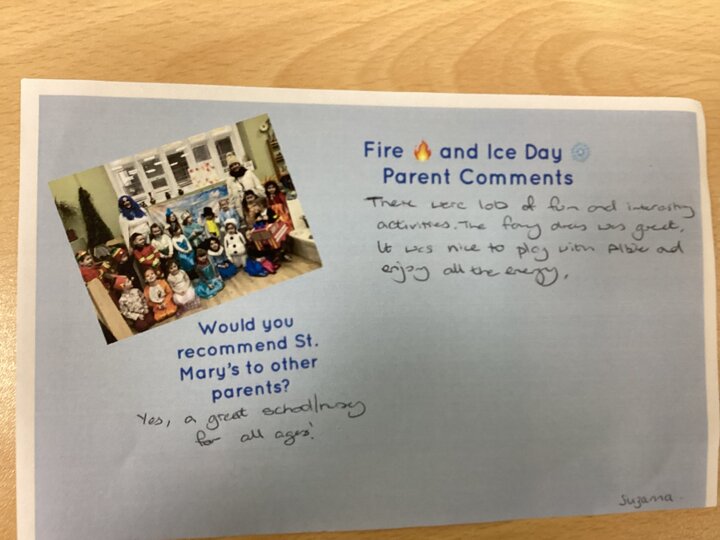 Fire 🔥 and Ice Day ❄️
Parent Comments
There were lots of fun and interesting
activities. The fancy dress was great.
It was nice to play with Albie and
enjoy all the energy.
Would you
recommend St.
Mary's to other
parents?
Yes, a great school/nursery
for all ages!
Suzanna